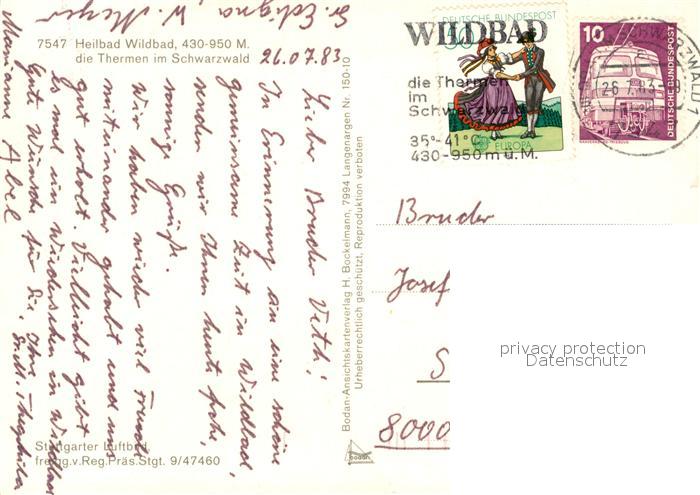 Sr. Edigna, W. Meyer
7547 Heilbad Wildbad, 430-950 M.
die Thermen im Schwarzwald
26.07.83
Lieber Bruder Veth!
In Erinnerung an eine schöne
gemeinsame Zeit in Wildbad,
senden wir Ihnen heute frohe,
sonnige Grüße.
Wir haben wieder viel Freude
miteinander gehabt und uns
gut erholt. Vielleicht gibt
es mal ein Wiedersehen in Wildbad
Gute Wünsche für Sie, Ihre
Marianne Abel
Stuttgarter Luftbild
freig.v.Reg.Präs.Stgt. 9/47460
Bodan-Ansichtskartenverlag H. Bockelmann, 7994 Langenargen Nr. 150-10
Urheberrechtlich geschützt, Reproduktion verboten
bodan
DEUTSCHE BUNDESPOST
EUROPA
WILDBAD
die Thermen
im
Schwarzwald
35°-41°C
430-950 m ü. M.
10
DEUTSCHE BUNDESPOST
Bruder
Josef
S
8000
privacy protection
Datenschutz